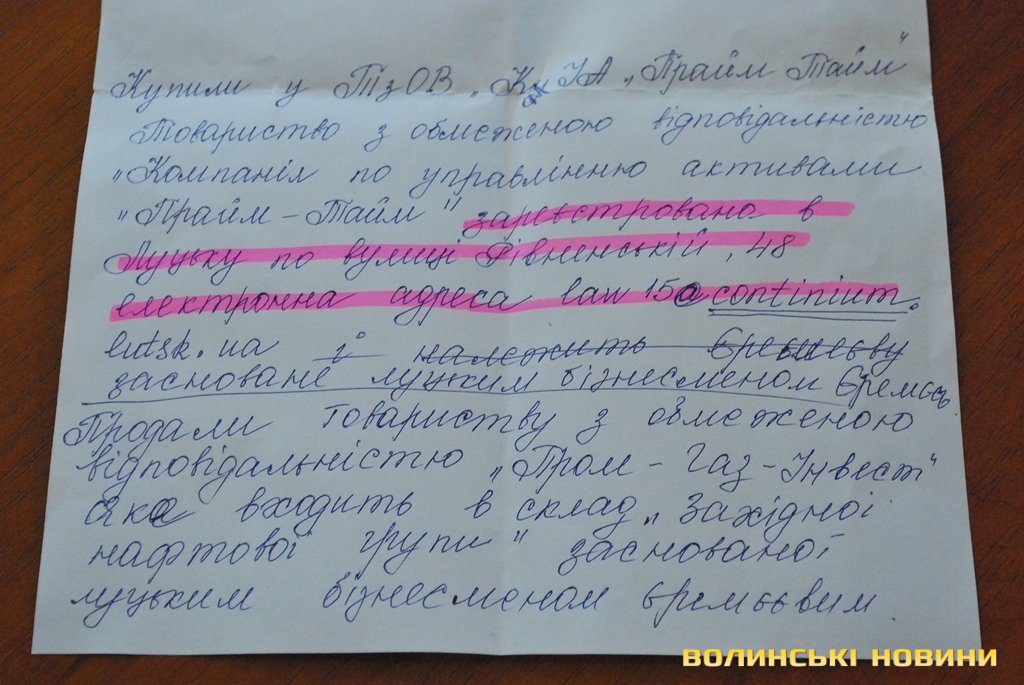 Купили у ТзОВ „К УА „Прайм Тайм"
Товариство з обмеженою відповідальністю
„Компанія по управлінню активами
"Прайм-Тайм" зареєстровано в
Луцьку по вулиці Рівненській, 48
електронна адреса law15@continium.
lutsk.ua і належить Єремеєву
засноване луцьким бізнесменом Єремеєв
Продали товариству з обмеженою
відповідальністю „Пром-Газ-Інвест"
яке входить в склад „Західної
нафтової групи" заснованої
луцьким бізнесменом Єремеєвим
ВОЛИНСЬКІ НОВИНИ